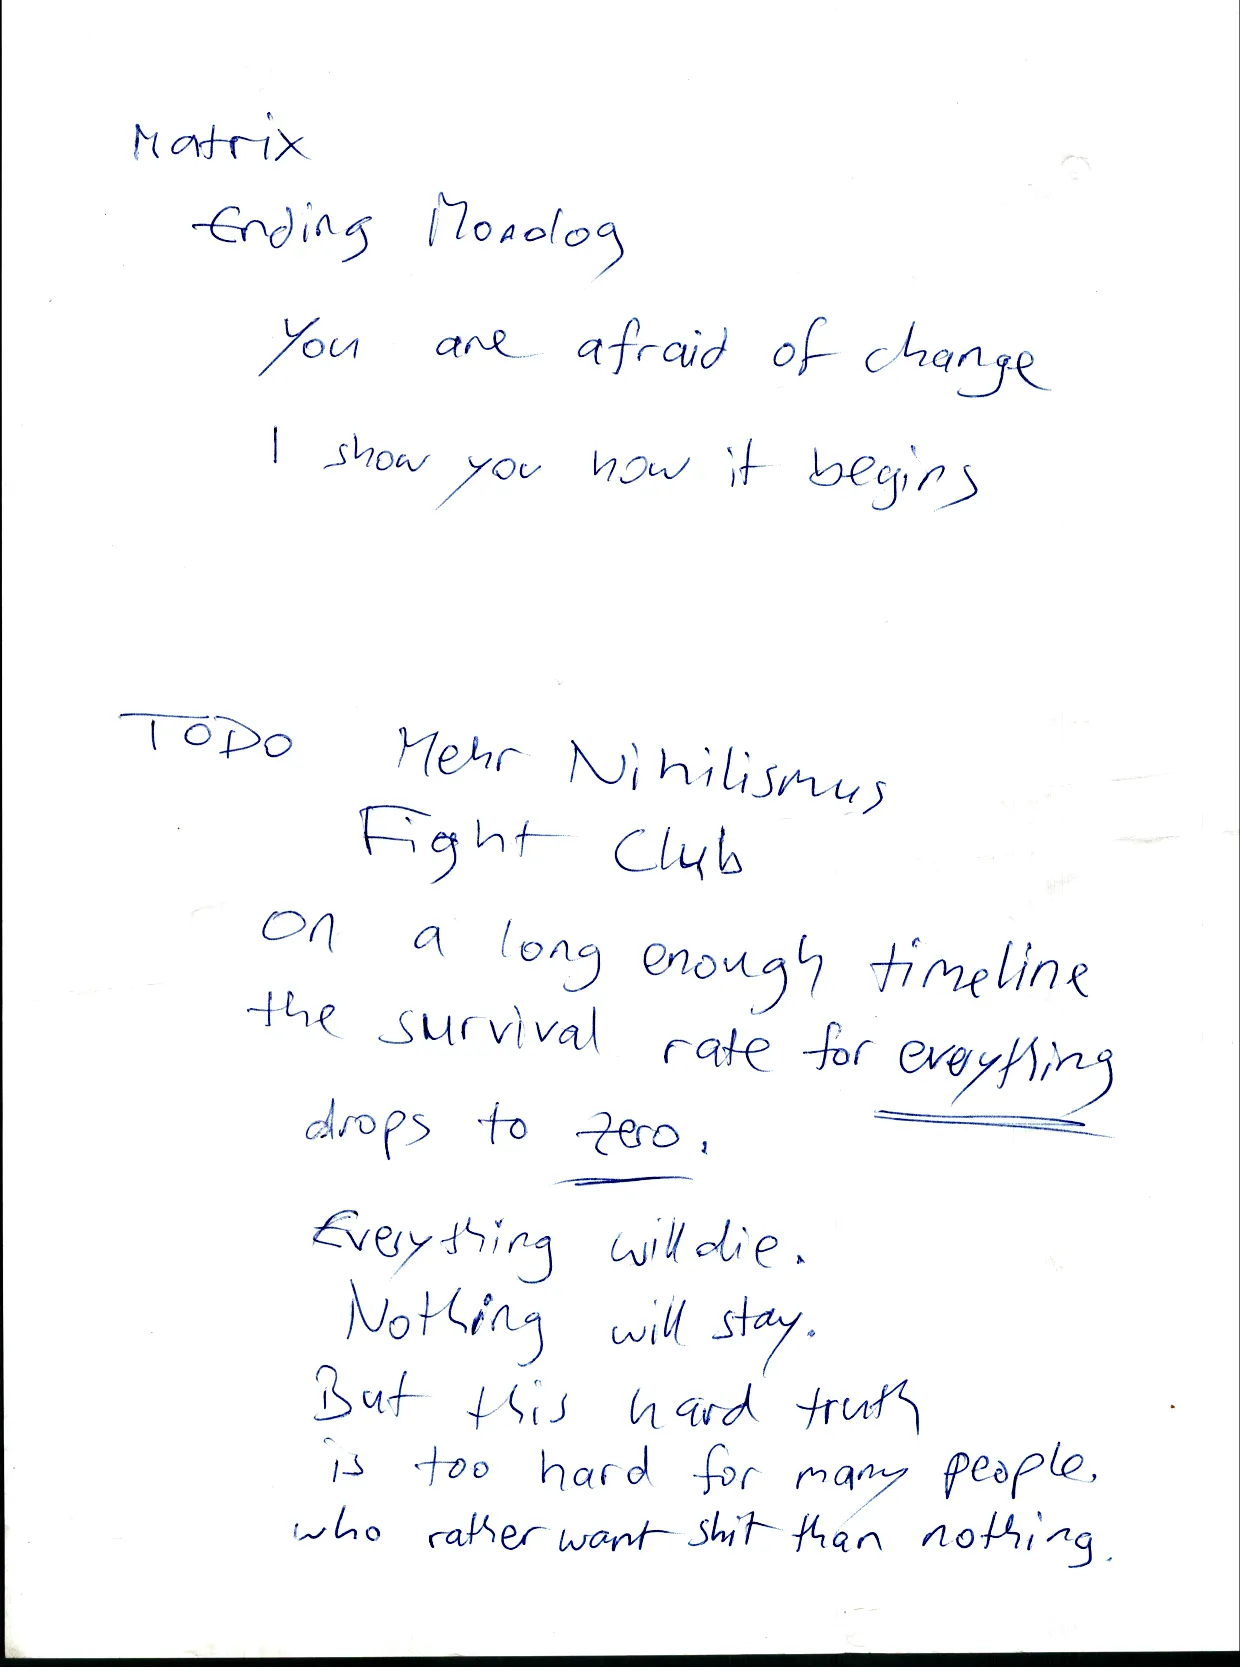 Matrix
Ending Monolog
You are afraid of change
I show you how it begins
TODO Mehr Nihilismus
Fight Club
on a long enough timeline
the survival rate for everything
drops to zero.
Everything will die.
Nothing will stay.
But this hard truth
is too hard for many people,
who rather want shit than nothing.